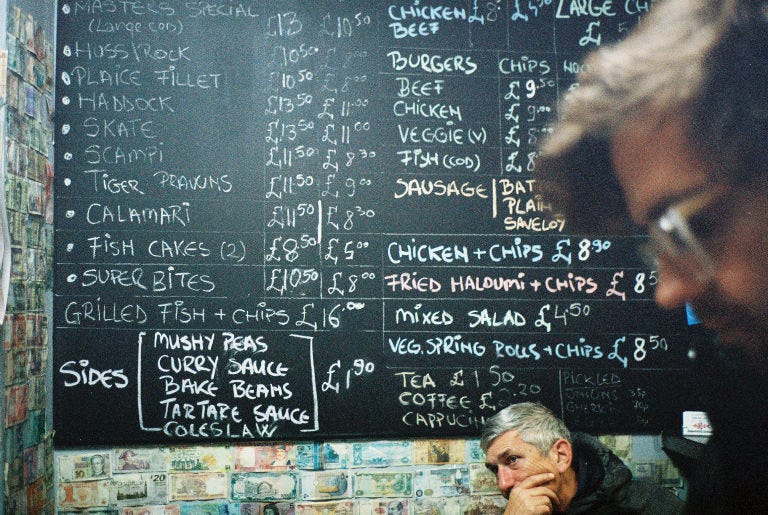 MASTERS SPECIAL £13 £10.50
(Large COD)
HUSS/ROCK £10.50
PLAICE FILLET £10.50 £8.00
HADDOCK £13.50 £11.00
SKATE £13.50 £11.00
SCAMPI £11.50 £8.30
TIGER PRAWNS £11.50 £9.00
CALAMARI £11.50 £8.30
FISH CAKES (2) £8.50 £5.00
SUPER BITES £10.50 £8.00
GRILLED FISH + CHIPS £16.00
SIDES
MUSHY PEAS
CURRY SAUCE
BAKE BEANS
TARTARE SAUCE
COLESLAW
£1.90
CHICKEN £8
BEEF
LARGE CH
£
BURGERS CHIPS NO
BEEF £9.50
CHICKEN £9.00
VEGGIE (V) £8
FISH (COD) £8
SAUSAGE BAT
PLAIN
SAVELOY
CHICKEN + CHIPS £8.90
FRIED HALOUMI + CHIPS £8.5
MIXED SALAD £4.50
VEG. SPRING ROLLS + CHIPS £8.50
TEA £1.50
COFFEE £2.20
CAPPUCIN
PICKLED
ONIONS
GHERKI